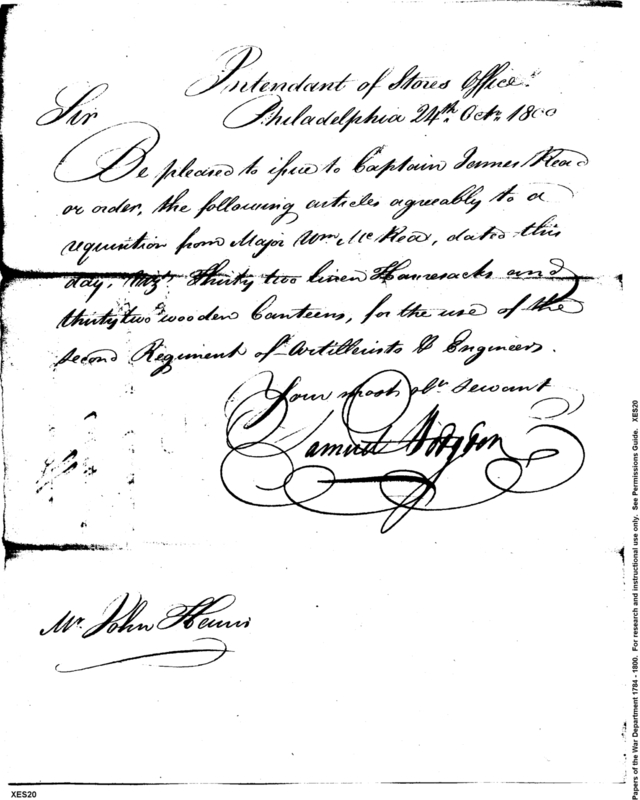 Intendant of Stores Office
Philadelphia 24th. Octr. 1800
Sir
Be pleased to issue to Captain James Read
or order, the following articles agreeably to a
requisition from Major Wm. Mc Rea, dated this
day, Vizt. Thirty two linen Haversacks and
thirty two wooden Canteens, for the use of the
second Regiment of Artillerists & Engineers.
Your most obt. servant
Samuel Hodgdon
Mr. John Harris
XES20
Papers of the War Department 1784 - 1800. For research and instructional use only. See Permissions Guide. XES20